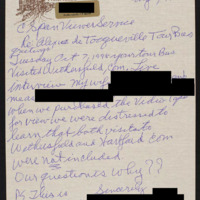 CSpan Viewer Service
Re Alexis de Tocqueville Tour Bus
Greetings!
Tuesday Oct 7, your tour Bus
Visited Wethersfield, Conn. Live
Interview My
made
when we purchased the Video Tape
for view we were distressed to
learn that both visits to
Wethersfield and Hartford Conn
were not included.
Our question is Why??
PS This is Sincerely